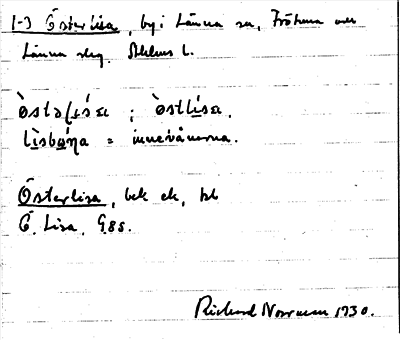 1-3 Österlisa, by i Länna sn, Frötuna och
Länna skg. Sthlms l.
òstəlísa ; òstlísa.
lìsbóna = innevånarna.
Österlisa, bek ek, bl
Ö. Lisa, G.85.
Rickard Norrman 1930.